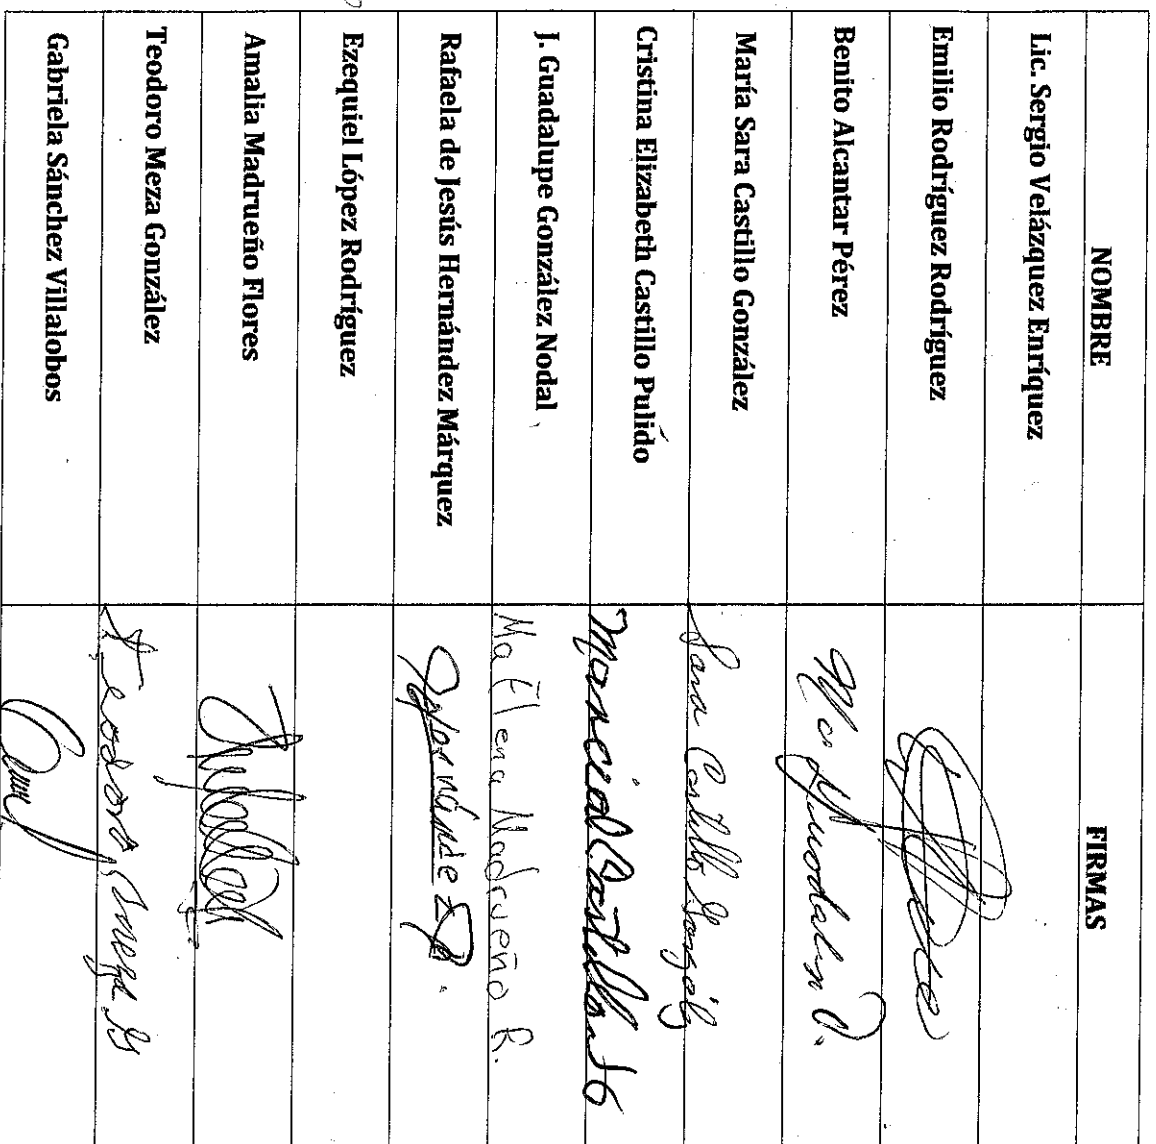 NOMBRE FIRMAS
Lic. Sergio Velázquez Enríquez
Emilio Rodríguez Rodríguez
Benito Alcantar Pérez
María Sara Castillo González Sara Castillo Gonzálz
Cristina Elizabeth Castillo Pulido Marcial Castillo
J. Guadalupe González Nodal Ma Elena Madrueño R.
Rafaela de Jesús Hernández Márquez
Ezequiel López Rodríguez
Amalia Madrueño Flores
Teodoro Meza González Teodoro Meza
Gabriela Sánchez Villalobos